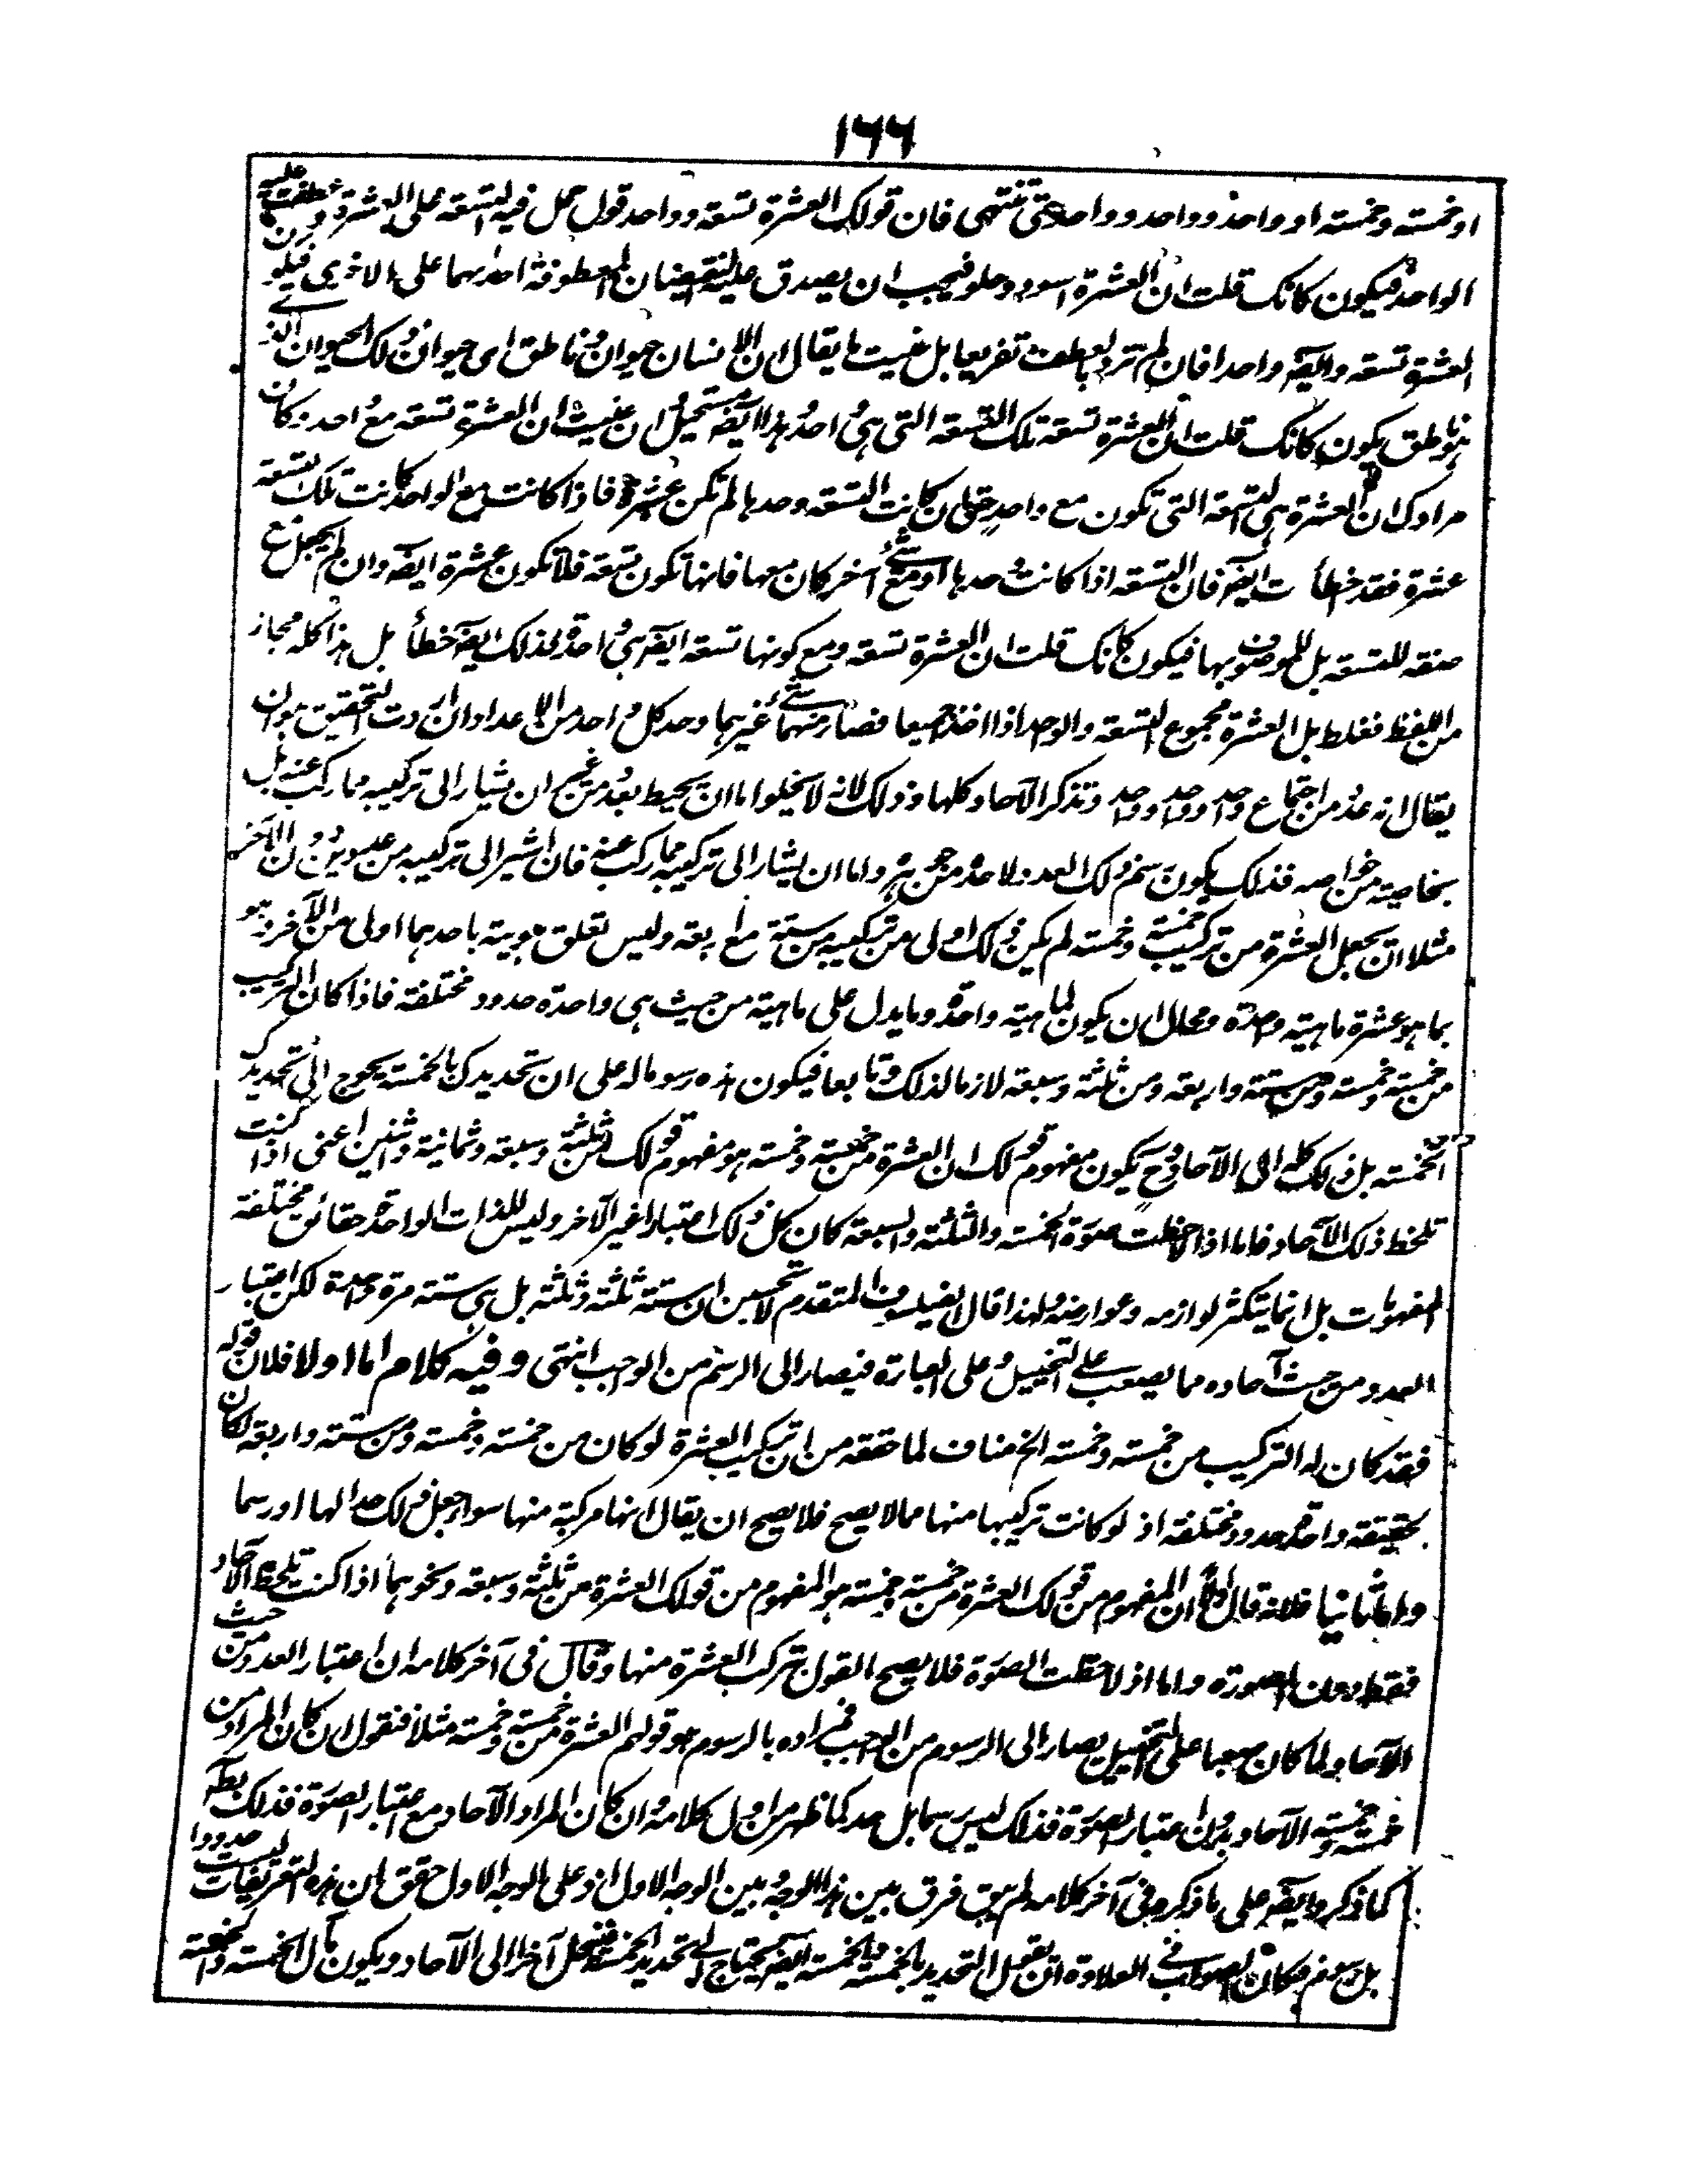 ١٦٦
او خمسته وخمسته او واحد وواحد وواحد حتى تنتهى فان قولك العشرة تسعة وواحد قول حمل فيه التسعة على العشرة وعطفت عليه
الواحد فيكون كانك قلت ان العشرة اسود وحلو فيجب ان يصدق عليه النقيضان المعطوفة احداهما على الاخرى فيكون
العشرة تسعة وايضه واحدا فان لم ترد بالعطف تعريفا بل عنيت ما يقال ان الانسان حيوان وناطق اى حيوان ذلك الحيوان الذى
هو ناطق يكون كانك قلت ان العشرة تسعة تلك التسعة التى هى واحد وهذا ايضه مستحيل وان عنيت ان العشرة تسعة مع واحد وكان
مرادك ان العشرة هى التسعة التى تكون مع واحد حتى ان كانت التسعة وحدها لم تكن عشرة فاذا كانت مع الواحد كانت تلك التسعة
عشرة فقد اخطأت ايضه فان التسعة اذا كانت وحدها او مع شئ آخر كان معها فانها تكون تسعة فلا تكون عشرة ايضه وان لم تجعل مع
صفة للتسعة بل للموصوف بها فيكون كانك قلت ان العشرة تسعة ومع كونها تسعة ايضه هى واحدة فذلك ايضه خطأ بل هذا كله مجاز
من اللفظ مغلط بل العشرة مجموع التسعة والواحد اذا اخذ جميعا فصار منهما شئ غيرهما وحد كل واحد من الاعداد ان اردت التحقيق هو ان
يقال انه عدد من اجتماع واحد وواحد وواحد وتذكر الآحاد كلها وذلك لانه لا يخلو اما ان يحيط بعدد من غير ان يشار الى تركيبه مما ركب عنه بل
بخاصية من خواصه فذلك يكون رسم ذلك العدد لا حده من جوهره واما ان يشار الى تركيبه مما ركب عنه فان اشير الى تركيبه من عددين دون الآخر
مثلا ان تجعل العشرة من تركيب خمسته وخمسته لم يكن ذلك اولى من تركيبه من ستة مع اربعة وليس تعلق هويته باحدهما اولى من الآخر وهو
بما هو عشرة ماهيته واحدة ومحال ان يكون لماهيته واحدة وما يدل على ماهيته من حيث هى واحدة حدود مختلفة فاذا كان التركيب
من خمسته وخمسته ومن ستة واربعة ومن ثلثة وسبعة لازما لذلك وتابعا فيكون هذه رسوما له على ان تحديدك بالخمسة يحوج الى تحديد
الخمسة بل ذلك كله الى الآحاد وح يكون مفهوم قولك ان العشرة من خمسته وخمسته هو مفهوم قولك من ثلثة وسبعة وثمانية واثنين اعنى اذا كنت
تلحظ ذلك الآحاد فاما اذا لاحظت صورة الخمسة والثلثة والسبعة كان كل ذلك اعتبارا غير الآخر وليس للذات الواحدة حقائق مختلفة
المفهومات بل انما يتكثر لوازمه وعوارضه ولهذا قال الفيلسوف المتقدم لا تحسبن ان ستة ثلثة وثلثة بل هى ستة مرة واحدة لكن اعتبار
العدد من حيث آحاده مما يصعب على التخييل وعلى العبارة فيصار الى الرسم من الوجب انتهى وفيه كلام اما اولا فلان قوله
فقد كان له التركيب من خمسة وخمسة الخ مناف لما حققه من ان تركيب العشرة لو كان من خمسة وخمسة ومن ستة واربعة لكان
لحقيقة واحدة حدود مختلفة اذ لو كانت تركيبها منها مما لا يصح فلا يصح ان يقال انها مركبة منها سواء جعل ذلك حدا لها او رسما
واما ثانيا فلانه قال اولا ان المفهوم من قولك العشرة من خمسة وخمسة هو المفهوم من قولك العشرة من ثلثة وسبعة ونحوهما اذا كنت تلحظ الآحاد
فقط دون الصورة واما اذا لاحظت الصورة فلا يصح القول بتركب العشرة منها وقال فى آخر كلامه ان اعتبار العدد من حيث
الآحاد لما كان صعبا على التخييل يصار الى الرسوم من الوجب فمراده بالرسوم هو قولهم العشرة من خمسة وخمسة مثلا فنقول ان كان المراد من
خمسة وخمسة الآحاد بدون اعتبار الصورة فذلك ليس رسما بل حد كما ظهر من اول كلامه وان كان المراد الآحاد مع اعتبار الصورة فذلك بط
كما ذكر وايضه على ما ذكره فى آخر كلامه لم يبق فرق بين هذا الوجه وبين الوجه الاول اذ على الوجه الاول حقق ان هذه التعريفات ليست حدودا
بل رسوم فكان الصواب فى العلاوة ان يقول التحديد بالخمسة والخمسة ايضه يحتاج الى تحديد الخمسة فينحل آخرا الى الآحاد ويكون مآل الخمسة والخمسة